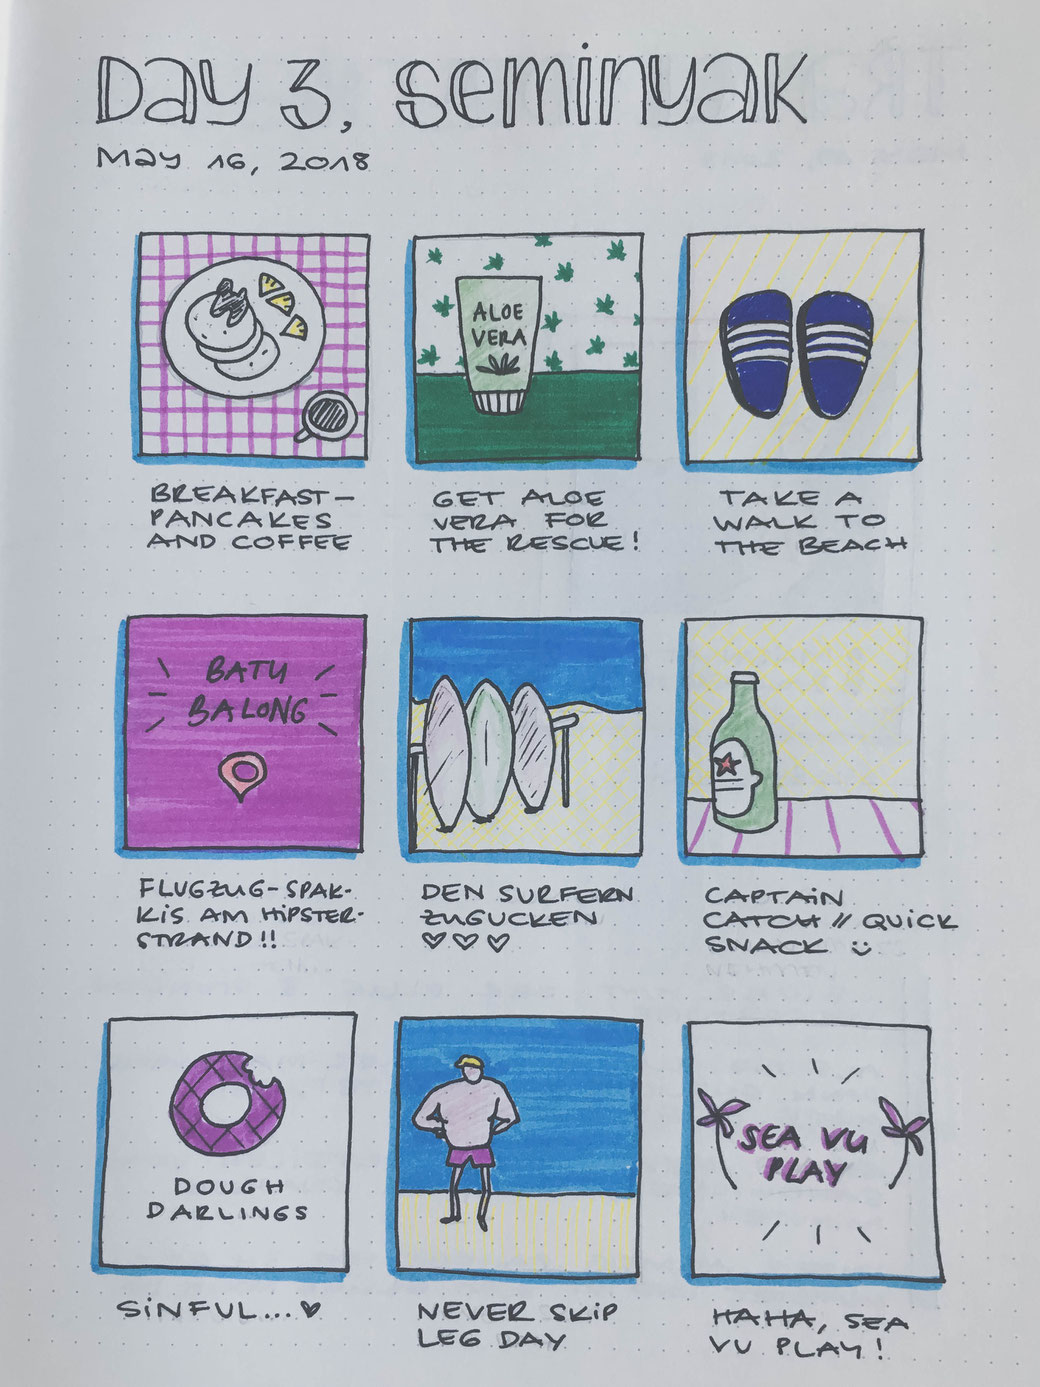 Day 3, Seminyak
May 16, 2018
ALOE
VERA
BREAKFAST –
PANCAKES
AND COFFEE
GET ALOE
VERA FOR
THE RESCUE!
TAKE A
WALK TO
THE BEACH
BATU
BALONG
FLUGZUG-SPAK-
KIS AM HIPSTER-
STRAND!!
DEN SURFERN
ZUGUCKEN
♡♡♡
CAPTAIN
CATCH // QUICK
SNACK ☺
DOUGH
DARLINGS
SEA VU
PLAY
SINFUL...♥
NEVER SKIP
LEG DAY
HAHA, SEA
VU PLAY!